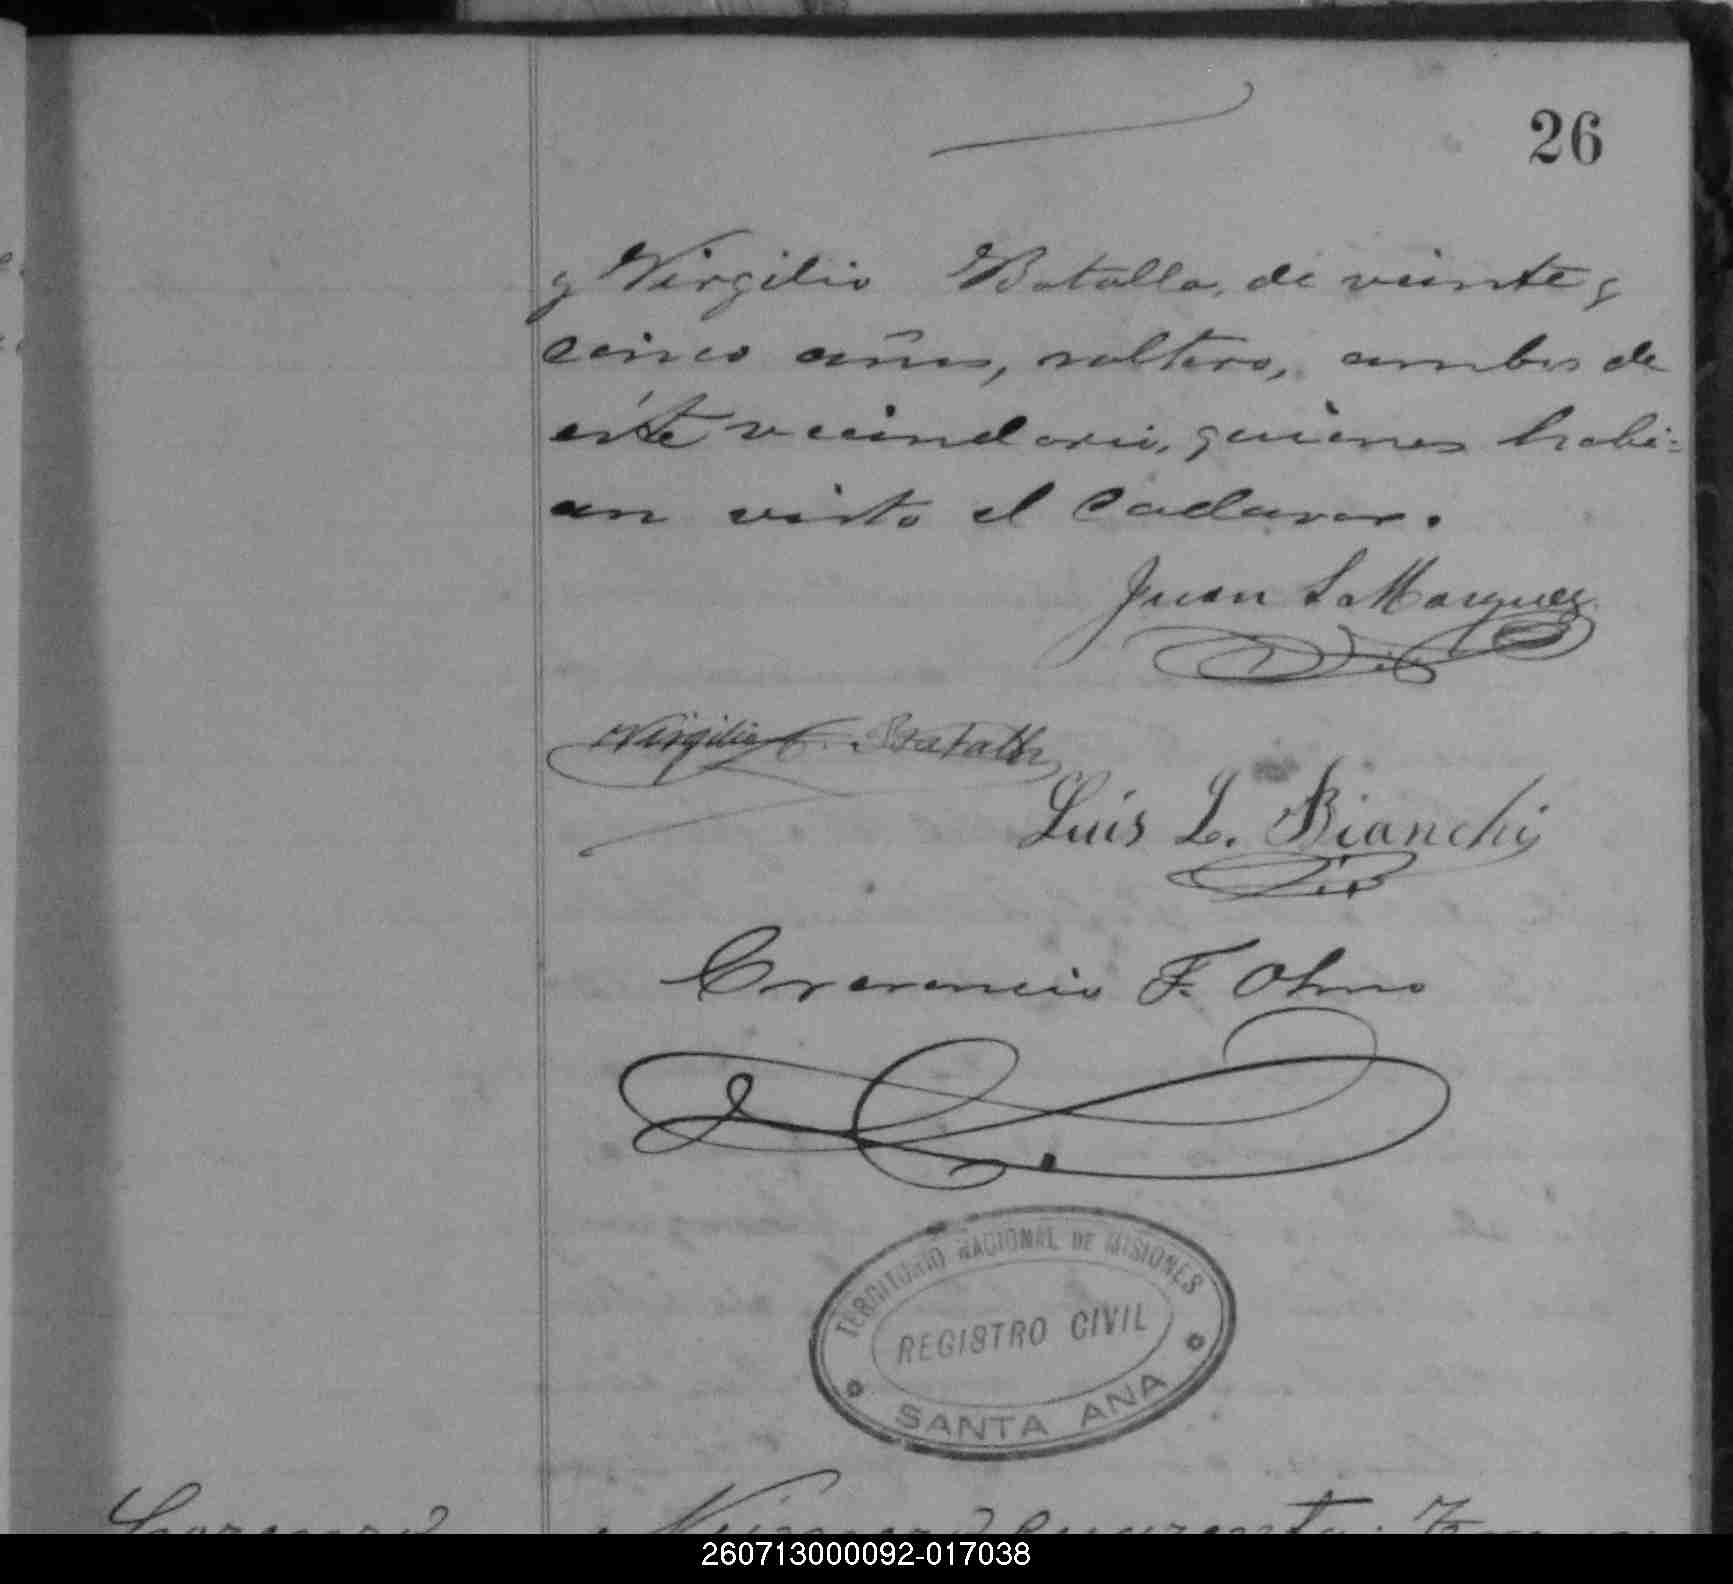 26
y Virgilio Batalla, de veinte y
cinco años, soltero, ambos de
éste vecindario, quienes habi=
an visto el cadaver.
Juan L Marquez
Virgilio Batalla
Luis L. Bianchi
F. Olmo
TERRITORIO NACIONAL DE MISIONES
REGISTRO CIVIL
SANTA ANA
Número cuarenta:
260713000092-017038